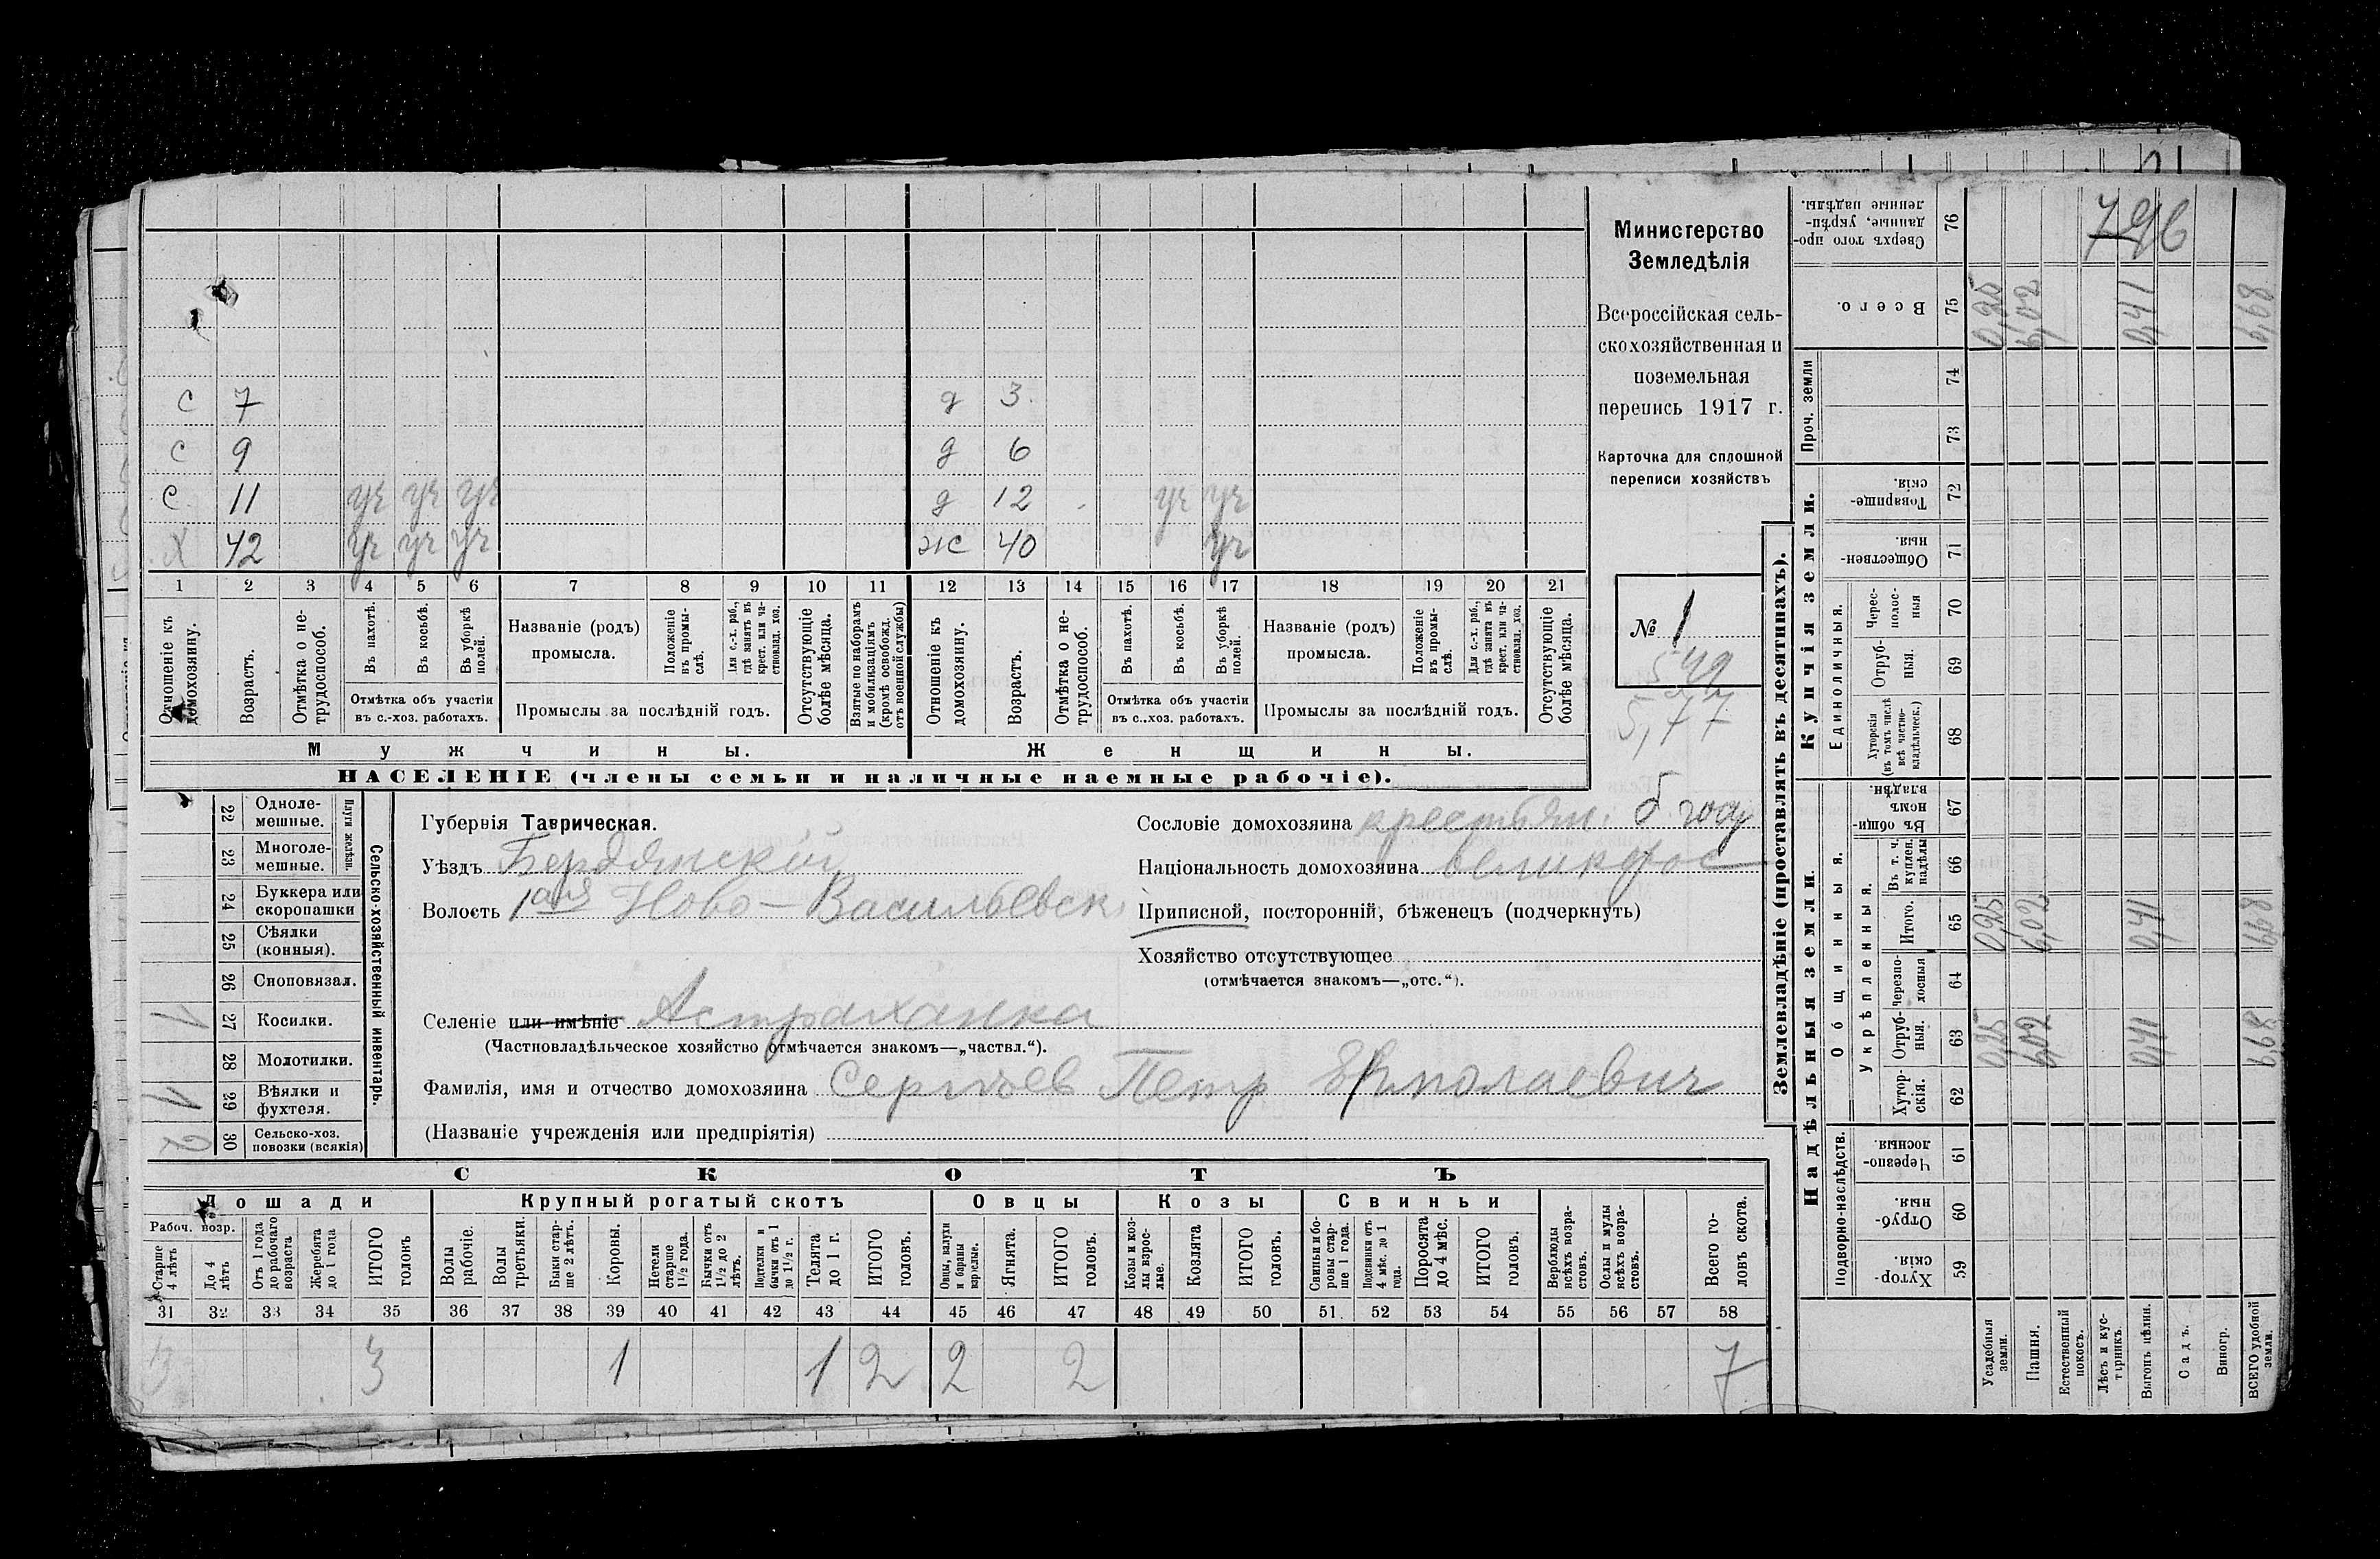 796
с 7 д 3
с 9 д 6
с 11 уч уч уч д 12 уч уч
х 42 уч уч уч ж 40 уч
1 2 3 4 5 6 7 8 9 10 11 12 13 14 15 16 17 18 19 20 21
Отношеніе къ домохозяину.
Возрастъ.
Отмѣтка о нетрудоспособ.
Въ пахотѣ.
Въ косьбѣ.
Въ уборкѣ полей.
Отмѣтка объ участіи
въ с.-хоз. работахъ.
Названіе (родъ)
промысла.
Положеніе въ промыслѣ.
Для с.-х. раб., гдѣ занятъ въ крест. или частновлад. хоз.
Промыслы за послѣдній годъ.
Отсутствующіе болѣе мѣсяца.
Взятые по наборамъ и мобилизаціямъ (кромѣ освобожд. отъ военной службы)
Отношеніе къ домохозяину.
Возрастъ.
Отмѣтка о нетрудоспособ.
Въ пахотѣ.
Въ косьбѣ.
Въ уборкѣ полей.
Отмѣтка объ участіи
въ с.-хоз. работахъ.
Названіе (родъ)
промысла.
Положеніе въ промыслѣ.
Для с.-х. раб., гдѣ занята въ крест. или частновлад. хоз.
Промыслы за послѣдній годъ.
Отсутствующіе болѣе мѣсяца.
Мужчины.
Женщины.
НАСЕЛЕНІЕ (члены семьи и наличные наемные рабочіе).
Министерство
Земледѣлія
Всероссійская сель-
скохозяйственная и
поземельная
перепись 1917 г.
Карточка для сплошной
переписи хозяйствъ
№ 1
549
5,77
22 Одноле-
мешные.
23 Многоле-
мешные.
Плуги желѣзн.
24 Буккера или
скоропашки
25 Сѣялки
(конныя).
26 Сноповязал.
27 Косилки. 1
28 Молотилки.
29 Вѣялки и
фухтеля. 1
30 Сельско-хоз.
повозки (всякія) 2
Сельско-хозяйственный инвентарь.
Губернія Таврическая.
Уѣздъ Бердянскій
Волость 1ая Ново-Васильевск
Селеніе или имѣніе Астраханка
(Частновладѣльческое хозяйство отмѣчается знакомъ—„частвл.“).
Фамилія, имя и отчество домохозяина Сергѣев Петр Ермолаевич
(Названіе учрежденія или предпріятія)
Сословіе домохозяина крестьян.
Національность домохозяина великорос
Приписной, посторонній, бѣженецъ (подчеркнуть)
Хозяйство отсутствующее
(отмѣчается знакомъ—„отс.“).
СКОТЪ
Лошади
Рабоч. возр.
Старше 4 лѣтъ
До 4 лѣтъ
Отъ 1 года до рабочаго возраста
Жеребята до 1 года
ИТОГО головъ
Крупный рогатый скотъ
Волы рабочіе.
Волы третьяки.
Быки старше 2 лѣтъ.
Коровы.
Нетели старше 1½ года.
Бычки отъ 1½ до 2 лѣтъ.
Подтелки и бычки отъ 1 до 1½ г.
Телята до 1 г.
ИТОГО головъ.
Овцы
Овцы, валухи и бараны взрослые.
Ягнята.
ИТОГО головъ.
Козы
Козы и козлы взрослые.
Козлята
ИТОГО головъ.
Свиньи
Свиньи и боровы старше 1 года.
Подсвинки отъ 4 мѣс. до 1 года.
Поросята до 4 мѣс.
ИТОГО головъ.
Верблюды всѣхъ возрастовъ.
Ослы и мулы всѣхъ возрастовъ.
Всего головъ скота.
31 32 33 34 35 36 37 38 39 40 41 42 43 44 45 46 47 48 49 50 51 52 53 54 55 56 57 58
3 3 1 1 2 2 2 7
Землевладѣніе (проставлять въ десятинахъ).
Надѣльныя земли
Купчія земли.
Проч. земли
Подворно-наслѣдств.
Общинныя.
Укрѣпленныя.
Единоличныя.
Хуторскія. 59
Отрубныя. 60
Черезполосныя. 61
Хуторскія. 62
Отрубныя. 63 0,25 6,02 0,41 6,68
Черезполосныя 64
Итого. 65 0,25 6,02 0,41 6,68
Въ т. ч. куплен. надѣлы 66
Въ общинномъ владѣн. 67
Хуторскія (въ томъ числѣ всѣ частновладѣльческ.) 68
Отрубныя. 69
Чересполосныя 70
Общественныя. 71
Товарищескія. 72
73
74
Всего. 75 0,25 6,02 0,41 6,68
Сверхъ того проданные, укрѣпленные надѣлы. 76
Усадебныя земли.
Пашня.
Естественный покосъ.
Лѣсъ и кустарникъ.
Выгонъ цѣлин.
Садъ.
Виногр.
ВСЕГО удобной земли.